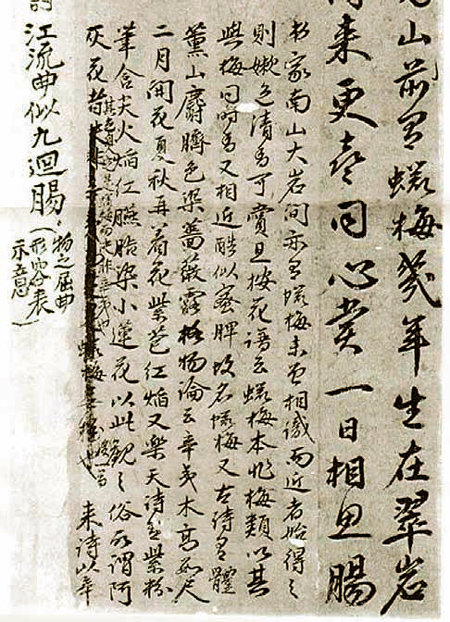 山前有蠟梅幾年生在翠岩
来更喜同心賞一日相思腸
家南山大岩間亦有蠟梅未曽相識而近者始得之
則嫩色清香可賞且按花譜云蠟梅本非梅類以其
與梅同時香又相近酷似蜜脾故名蠟梅又古詩有體
薫山麝臍色染薔薇露格物論云辛夷木高數尺
二月開花夏秋再着花紫苞紅焰又樂天詩有紫粉
筆含尖火焰紅臙脂染小蓮花以此觀之俗所謂阿
灰花 蠟梅 来詩以辛
江流曲似九迴腸
(物之屈曲
形容表
示意)